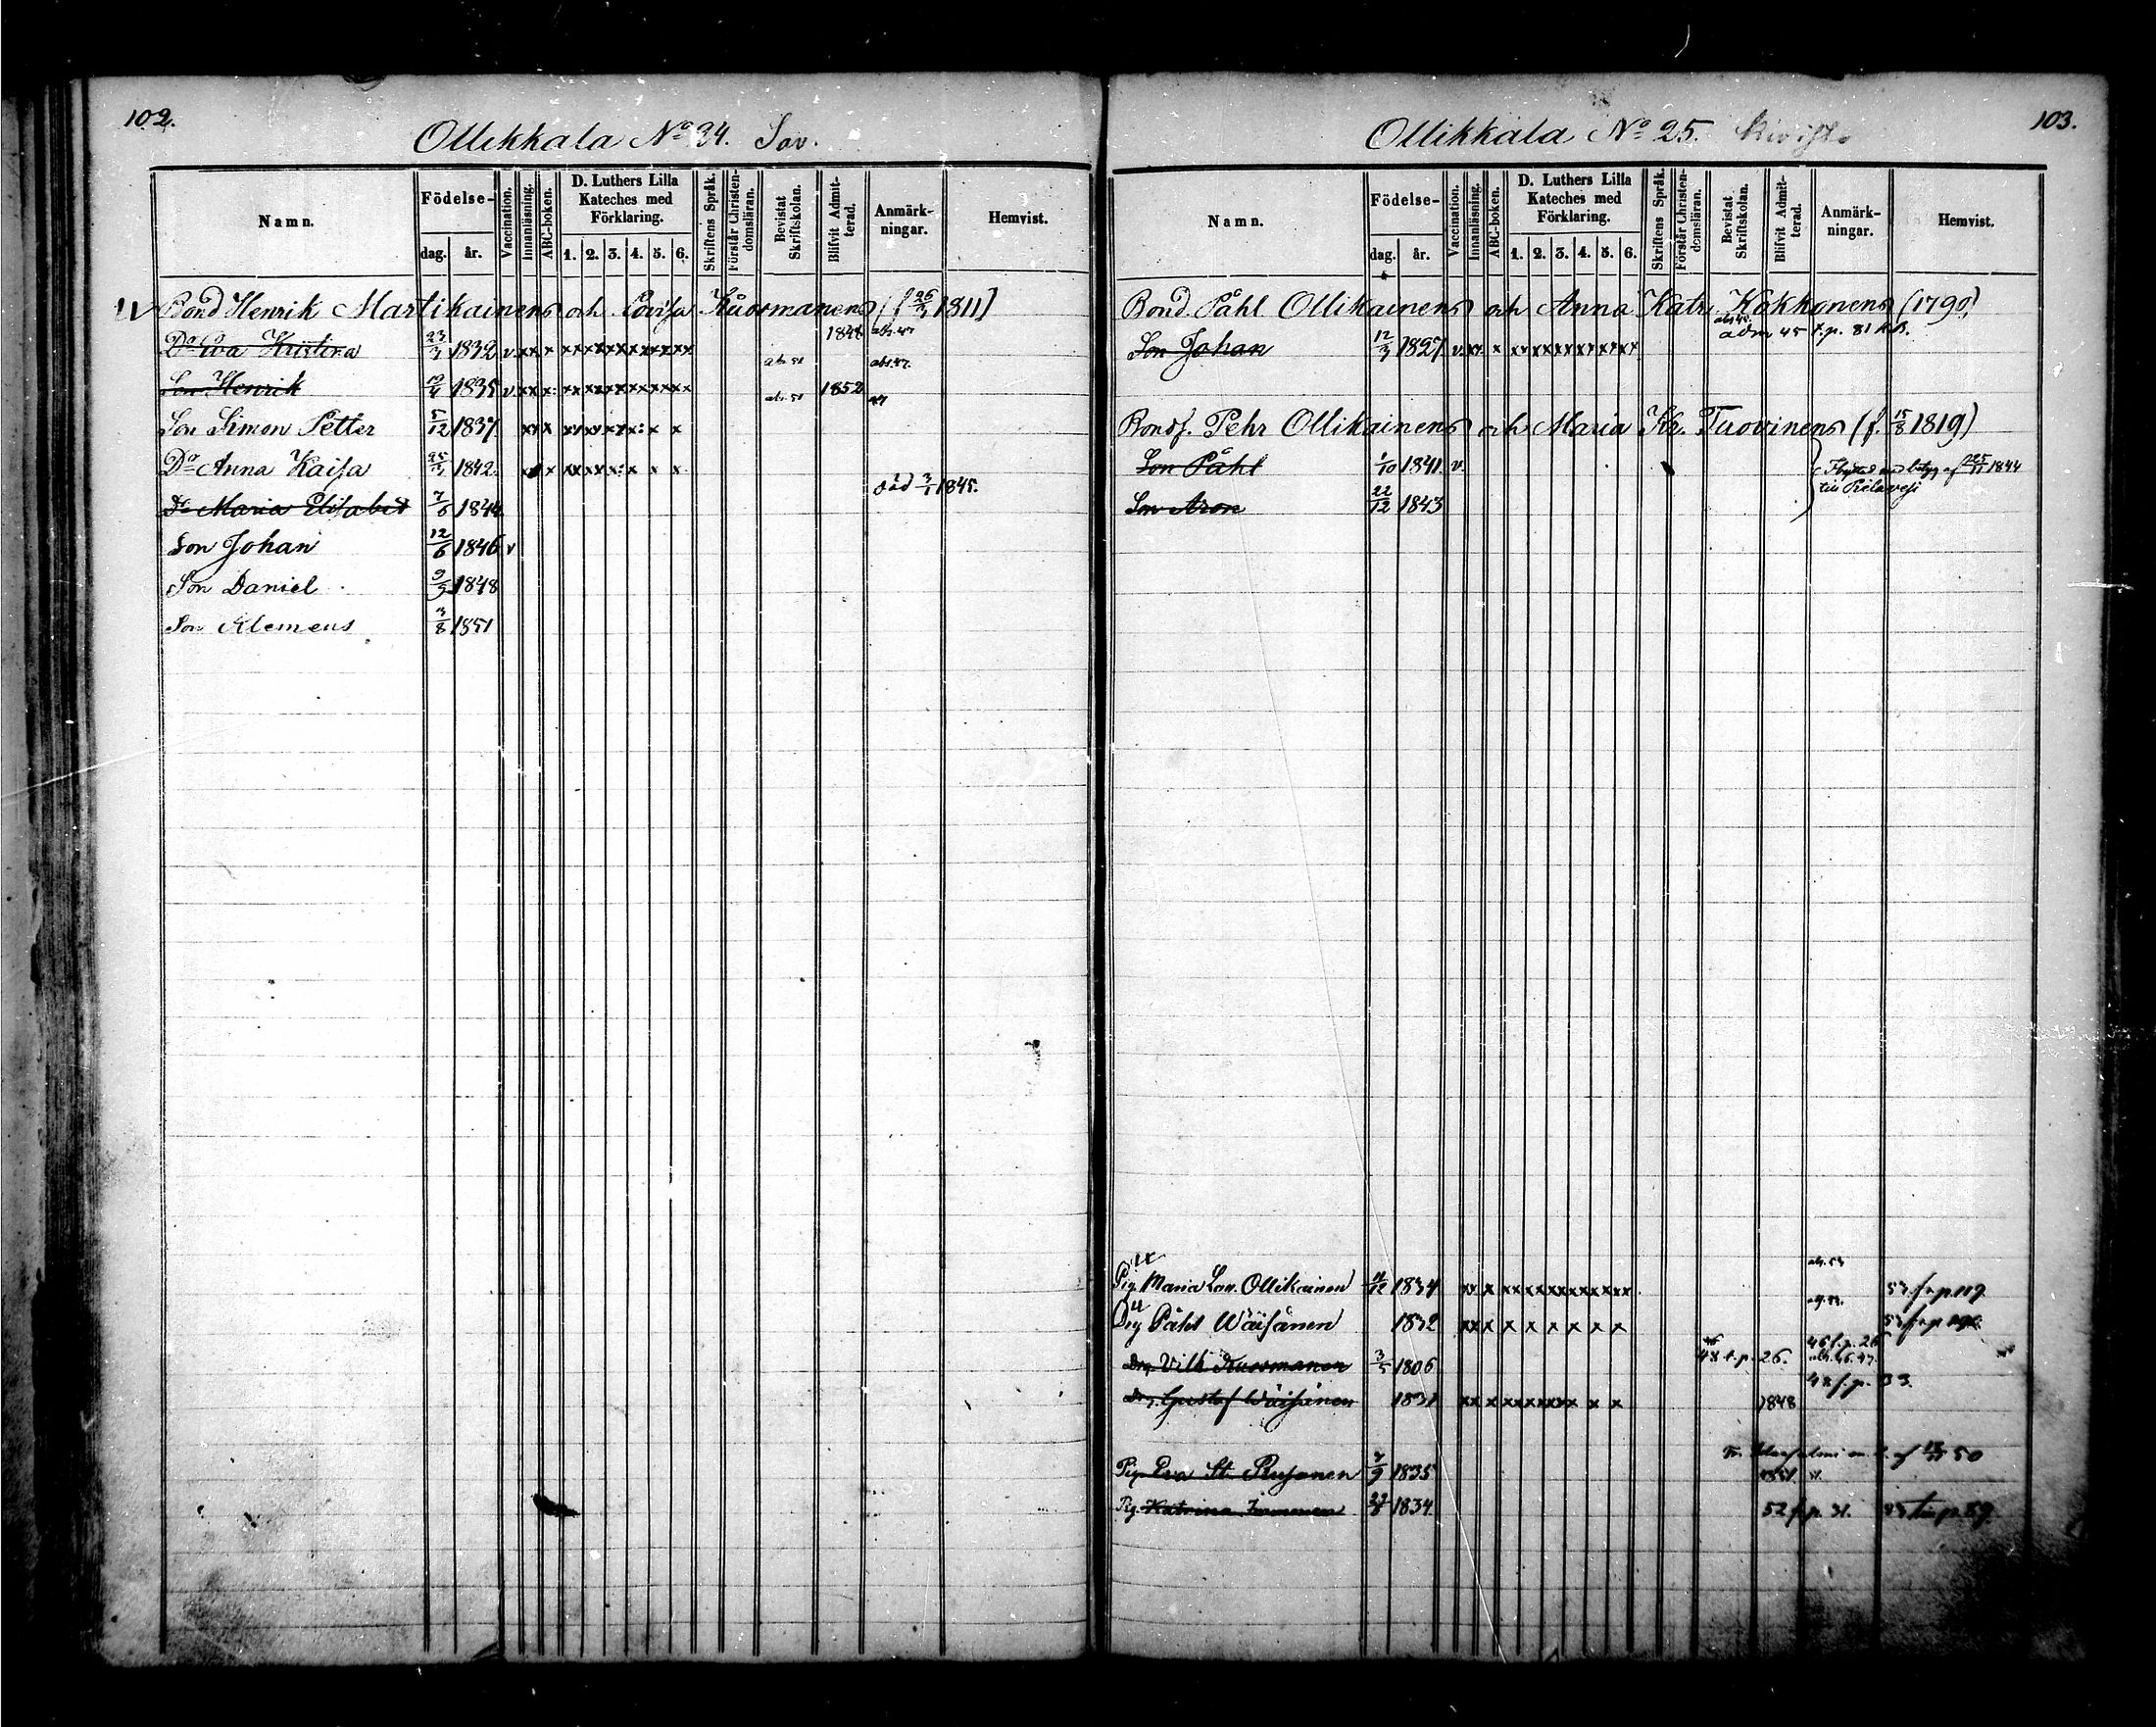 102.
Ollikkala No 24. Sav.
Namn. Födelse- dag. år. Vaccination. Innanläsning. ABC-boken. D. Luthers Lilla Kateches med Förklaring. 1. 2. 3. 4. 5. 6. Skriftens Språk. Förstår Christendomsläran. Bevistat Skriftskolan. Blifvit Admitterad. Anmärkningar. Hemvist.
Bond Henrik Martikainens och Lovisa Kuosmanens (f 1811)
Dr Eva Kristina 23/3 1832 v xx x xx xx xx xx xx xx 1848 abs. 47
Son Henrik 1835 v xx x xx xx xx xx xx xx abs. 50 1852 abs. 47.
Son Simon Petter 5/12 1837 abs. 50
Dr Anna Kaisa 1842.
Dr Maria Elisabet 7/6 1844 död 1845.
Son Johan 12/6 1846 v
Son Daniel 9/5 1848
Son Klemens 3/8 1851
103.
Ollikkala No 25. Kivisto
Namn. Födelse- dag. år. Vaccination. Innanläsning. ABC-boken. D. Luthers Lilla Kateches med Förklaring. 1. 2. 3. 4. 5. 6. Skriftens Språk. Förstår Christendomsläran. Bevistat Skriftskolan. Blifvit Admitterad. Anmärkningar. Hemvist.
Bond. Påhl Ollikainens och Anna Katr. Kokkonens (1790)
Son Johan 12/3 1827 v. xx x xx xx xx xx xx xx adm 45 t.p. 81 KB.
Bondf. Pehr Ollikainens och Maria Kr. Tuovinens (f. 15/8 1819)
Son Påhl 1/10 1841. v. flyttad med betyg af 25/11 1844
till Pielavesi
Son Aron 22/12 1843
Pig. Maria Lov. Ollikainen 1834 xx x xx xx xx xx xx xx abs. 53 53 f.p. 119
Drg Påhl Wäisänen 1832 xx x x x x x x x 53 f.p.
Drg. Vilh Kuosmanen 3/5 1806 48 t.p. 26. 46 f.p. 26
Drg. Gustaf Wäisänen 1831 xx x xx xx xx x x x 1848 abs. 46. 47. 48 f.p. 33.
Pig. Eva St. 7/9 1835 50
Pig. Katrina Immonen 1834. 52 f.p. 31. till p. 89.